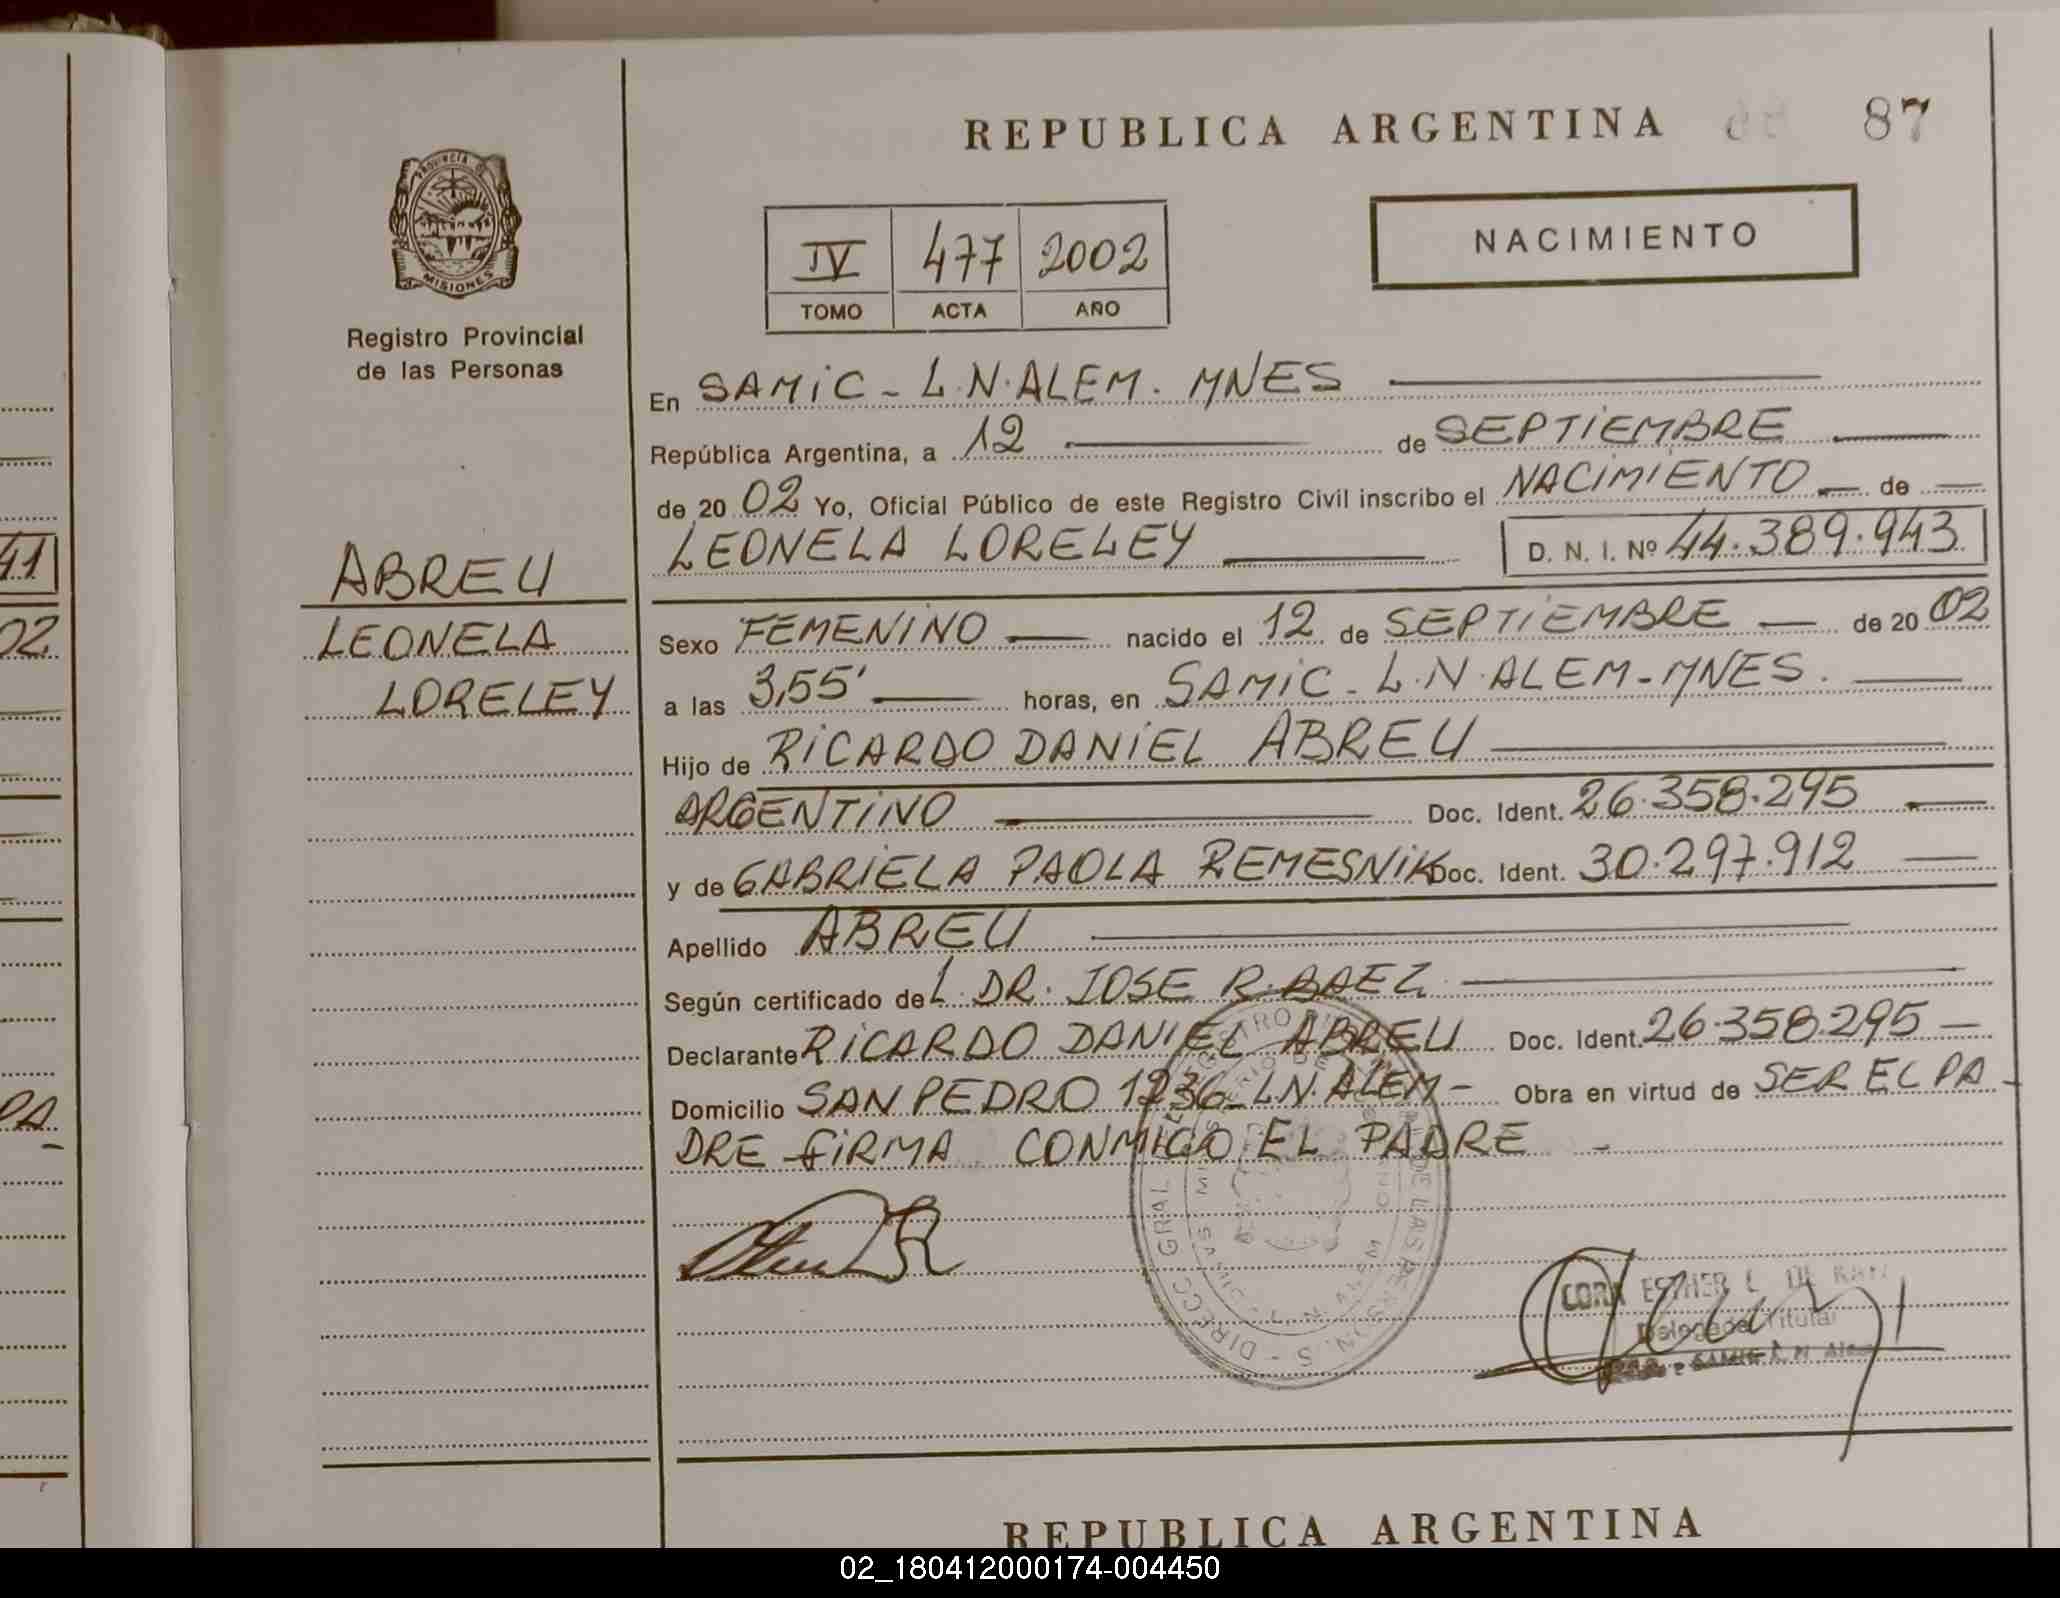 REPUBLICA ARGENTINA 87
PROVINCIA DE
MISIONES
Registro Provincial
de las Personas
NACIMIENTO
IV 477 2002
TOMO ACTA AÑO
En SAMIC - L.N. ALEM. MNES
República Argentina, a 12 de SEPTIEMBRE
de 20 02 Yo, Oficial Público de este Registro Civil inscribo el NACIMIENTO de
LEONELA LORELEY D. N. I. Nº 44.389.943
41
ABREU
LEONELA
LORELEY
02
Sexo FEMENINO nacido el 12 de SEPTIEMBRE de 20 02
a las 3,55' horas, en SAMIC - L.N. ALEM - MNES.
Hijo de RICARDO DANIEL ABREU
ARGENTINO Doc. Ident. 26.358.295
y de GABRIELA PAOLA REMESNIK Doc. Ident. 30.297.912
Apellido ABREU
Según certificado del DR. JOSE R. BAEZ
Declarante RICARDO DANIEL ABREU Doc. Ident. 26.358.295
Domicilio SAN PEDRO 1236 - L.N. ALEM - Obra en virtud de SER EL PA-
DRE FIRMA CONMIGO EL PADRE
PA-
CORA ESTHER L. DE
Delegada Titular
SAMIC L. N. Alem
REPUBLICA ARGENTINA
02_180412000174-004450